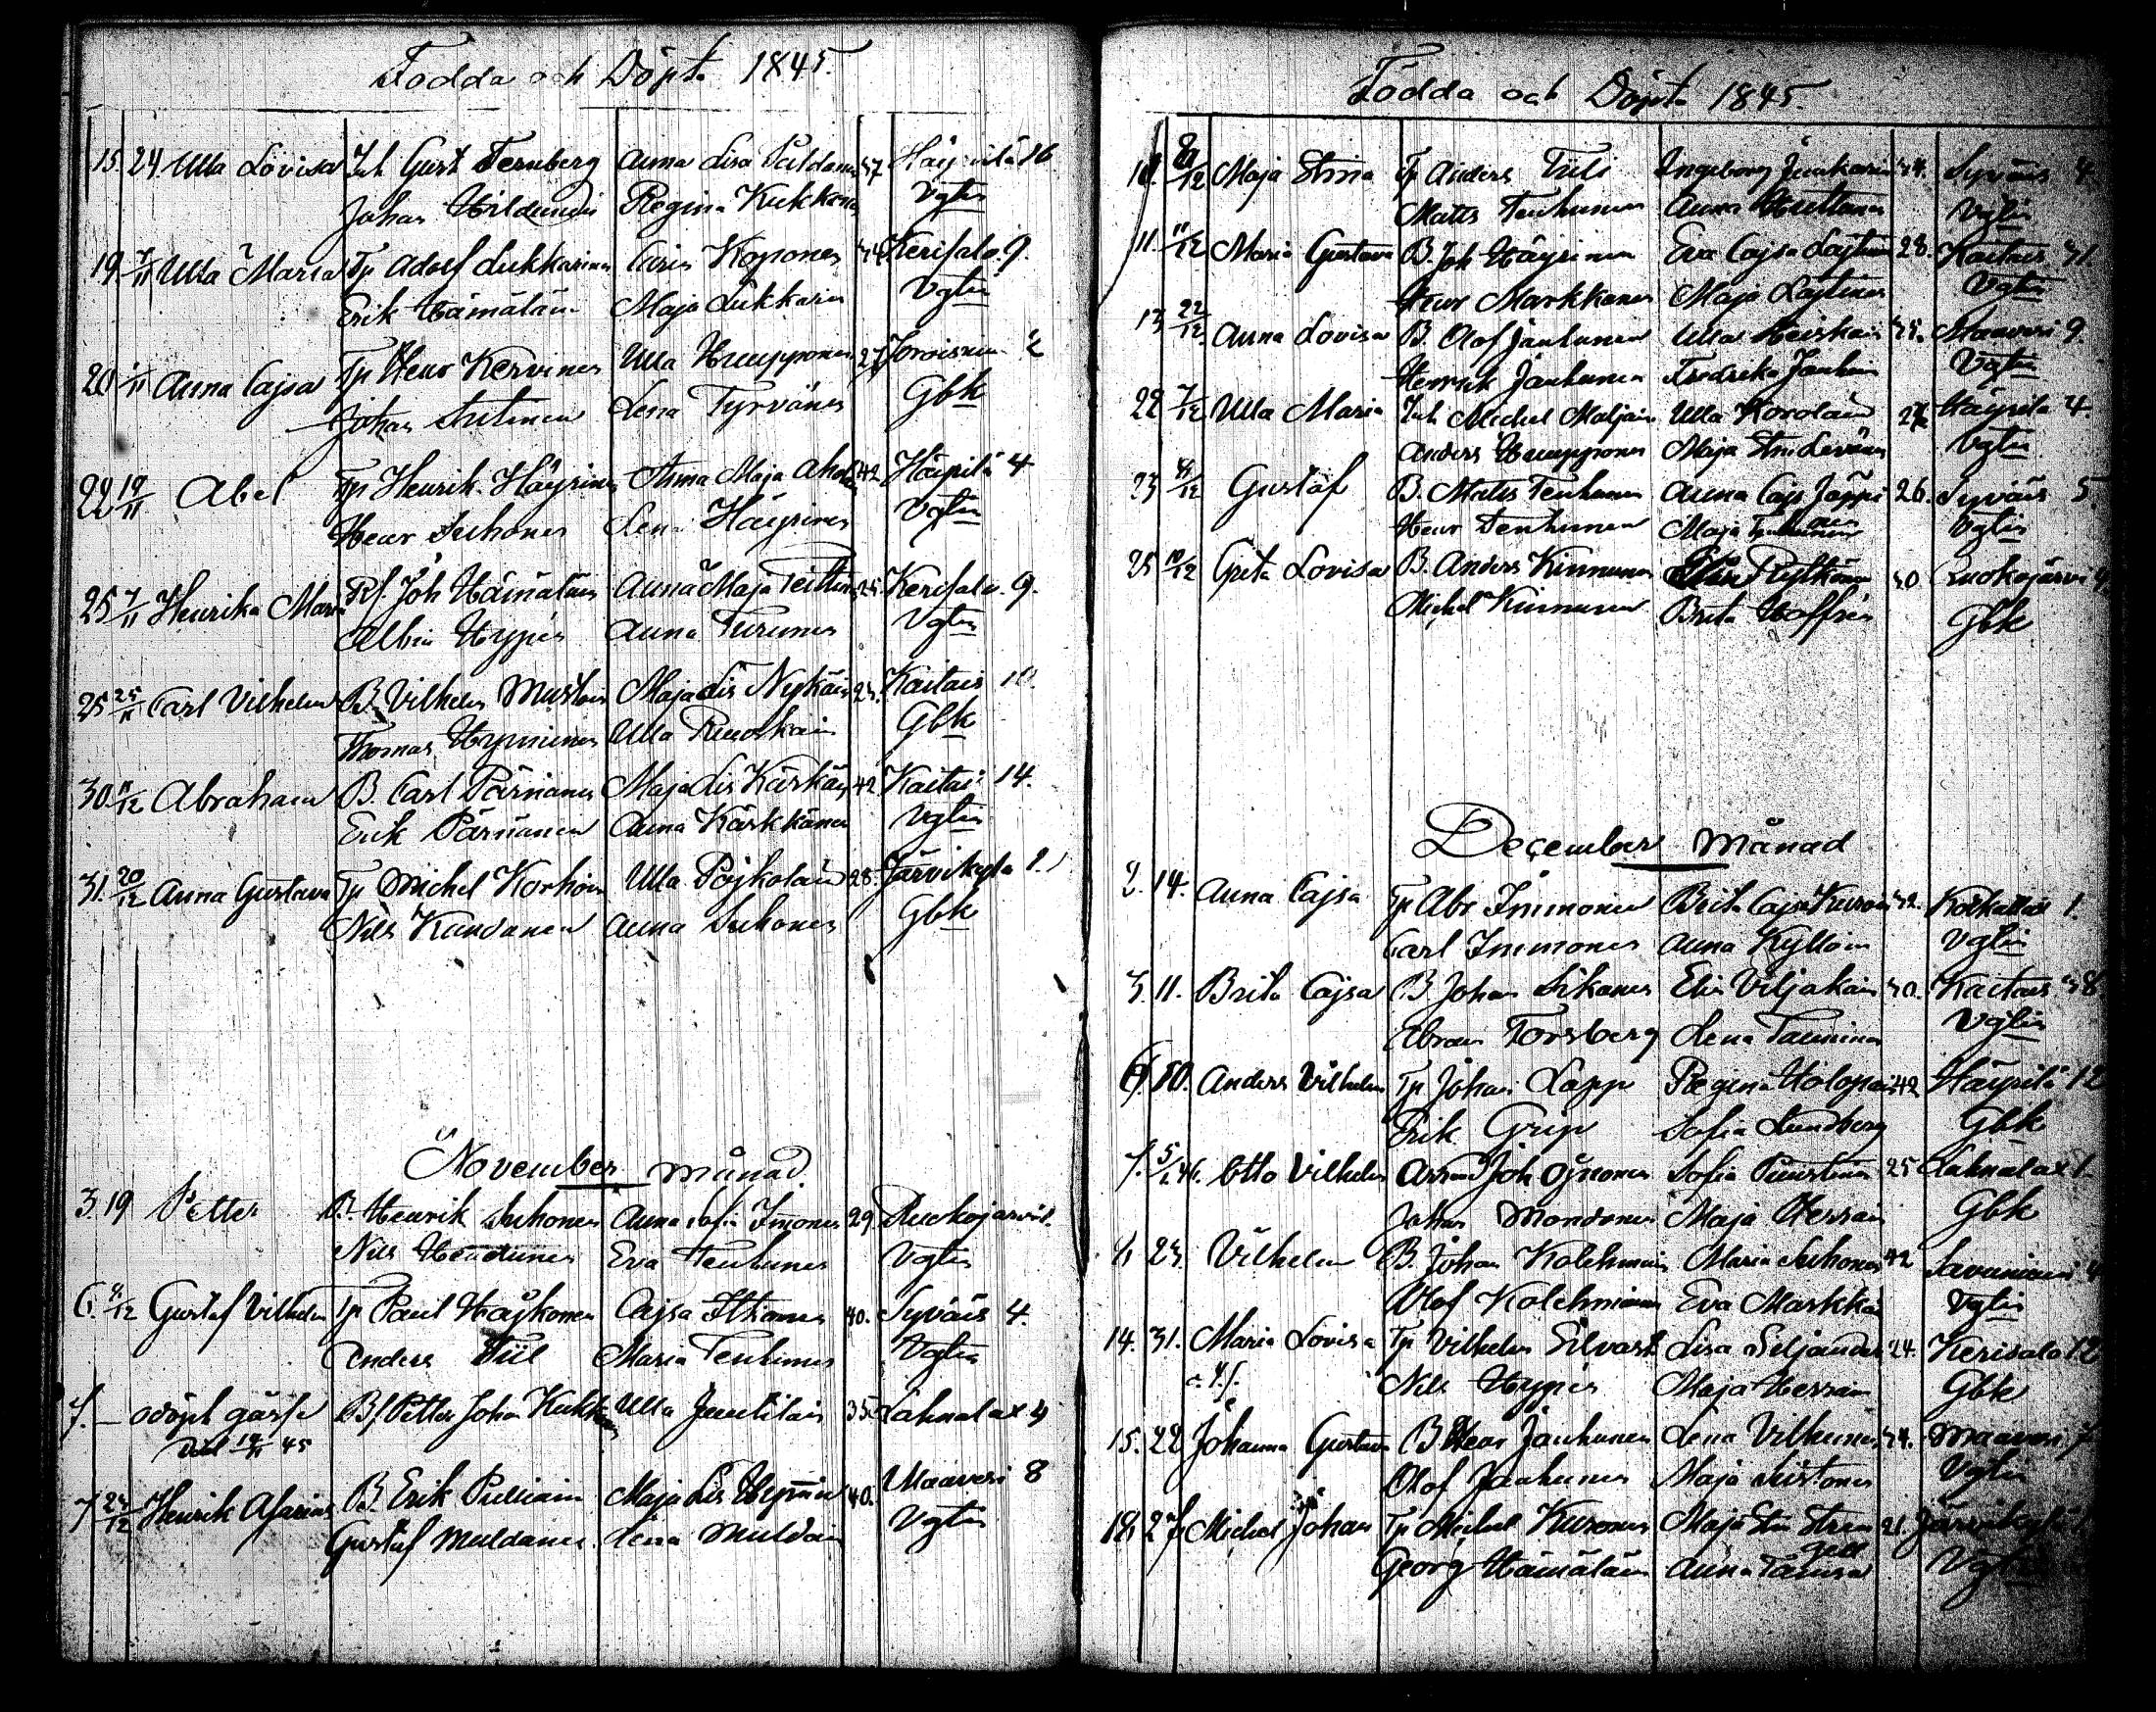 Födda och Döpta 1845.
15. 24. Ulla Lovisa Inh Gust Fernberg Anna Lisa 37 Häyrilä 16
Johan Regina Kukkonen Vgtin
19. 7/11 Ulla Maria Tp Adolf Lukkarinen Caris Koponen 34 Kerisalo 9.
Erik Hämäläin Maja Lukkarin Vgtin
20 Anna Cajsa Tp Henr Kervinen Ulla Huupponen 27 Joroisnie. 2
Johan Lena Tyrvänen Gbk
22 19/11 Abel Tp Henrik Häyrinen Anna Maja 42 Häyrilä 4
Henr Suhonen Lena Häyrinen Vgtin
25 7/11 Henrika Maria Joh Hämäläin Anna Maja 25. Kerisalo. 9.
Albin Hypén Anna Turunen Vgtin
25 25/11 Carl Vilhelm B. Vilhelm Muston Maja Lis Nykäin 23. Kaitais
Thomas Hynninen Ulla Ruuskain Gbk
30. Abraham B. Carl Pärnänen Maja Lis Kärkäin 42. Kaitais 14.
Erik Pärnänen Anna Kärkkänen Vgtin
31. 20/12 Anna Gustava Tp Michel Korhoin Ulla Pöjkoläin 28. Järvikylä 1.
Nils Kandanen Anna Suhonen Gbk
November månad.
3. 19 Petter B. Henrik Suhonen Anna Sofia Immonen 29. Ruokojärvi
Nils Eva Tenhunen Vgtin
6. 4/12 Gustaf Vilhelm Tp Paul Häjkonen Cajsa Ithonen 40. Syväis 4.
Anders Tiil Maria Tenhunen Vgtin
7. — odöpt gåsse Bf. Petter Johan Kukkonen Ulla Juutilain 35. Lahnalax 4
Död 45
7 23/12 Henrik Asarias B. Erik Pulliain Maja Lis Hynnin 40. Maavesi 8
Gustaf Muldanen. Lena Muldain Vgtin
Födda och Döpta 1845.
10. 8/12 Maja Stina Tp Anders Tiili Ingeborg Junkarin 34. Syväis 4
Matts Tenhunen Anna Huttunen Vgtin
11. 11/12 Maria Gustava B. Joh Häyrinen Eva Cajsa Lajtinen 28. Kaitais 31.
Henr Markkanen Maja Lajtinen Vgtin
13 22/12 Anna Lovisa B. Olof Jauhunen Ulla Heiskain 35. Maavesi 9.
Henrik Jauhunen Fredrika Jauhun Vgtin
22 7/12 Ulla Maria Inh Michel Maljain Ulla Koroläin 27 Häyrilä 4.
Anders Huupponen Maja Stin Vgtin
23 Gustaf B. Matts Tenhunen Anna Cajs Jäppi 26. Syväis 5.
Henr Tenhunen Maja Vgtin
25 10/12 Greta Lovisa B. Anders Kinnunen Pylkäin 30. Ruokojärvi
Michel Kinnunen Brita Hoffrén Gbk
December månad
2. 14. Anna Cajsa Tp Abr Immonen Brita Cajsa Kuron 32. Kotkatlax 1.
Carl Immonen Anna Kylloin Vgtin
3. 11. Brita Cajsa B Johan Sikanen Elin Viljakain 30. Kaitais 38.
Abram Forsberg Lena Taurinen Vgtin
6. 10. Anders Vilhelm Tp Johan Lapp Regina Holopain 42 Häyrilä 12
Erik Grip Sofia Lundberg Gbk
7. 5/1.46. Otto Vilhelm Arrend Joh Ojnonen Sofia Puustinen 25 Lahnalax 1.
Johan Mondonen Maja Herrain Gbk
8. 23. Vilhelm B. Johan Kolehmain Maria Suhonen 42 Savuniemi 4
Olof Kolehmainen Eva Markkain Vgtin
14. 31. Maria Lovisa Tp Vilhelm Silvast Lisa Seljander 24. Kerisalo 12
Nils Hypén Maja Herrain Gbk
15. 22 Johanna Gustava B Henr Jauhunen Lena Vilhunen 34. Maavesi 7
Olof Jauhunen Maja Vgtin
18. 27 Michel Johan Tp Michel Kuronen Maja Stin Stren 21. Järvikylä
gell
Georg Hämäläin Anna Vgtin